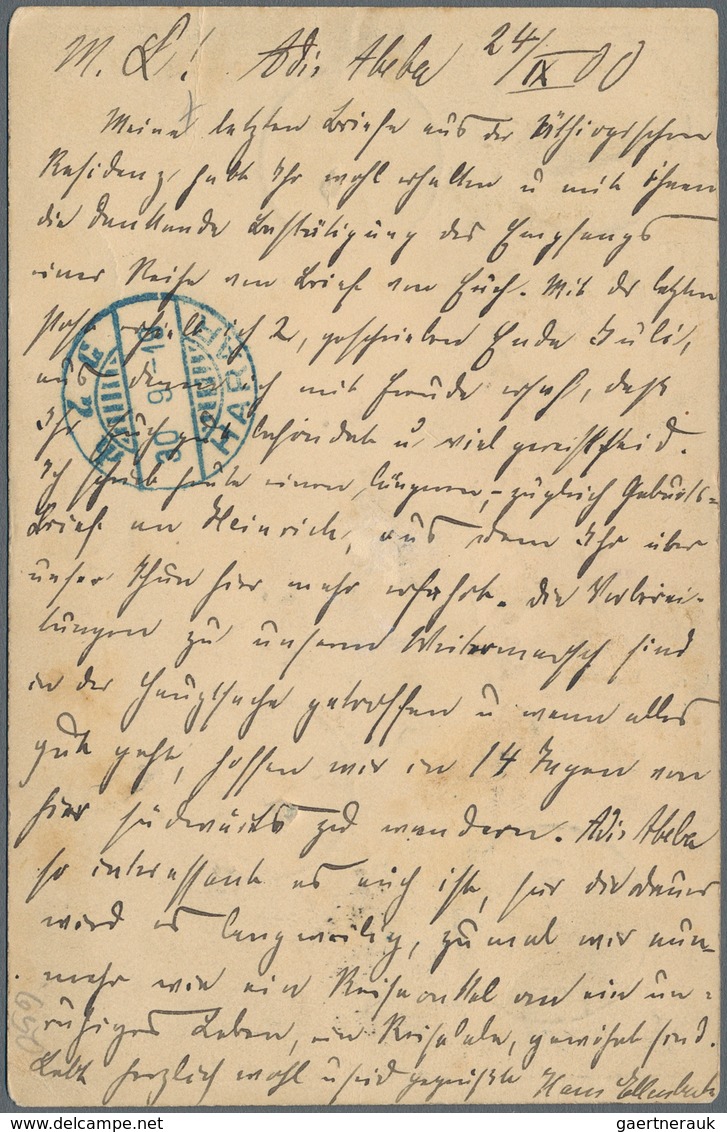 M. L! Adis Abeba 24/IX 00
Meine letzten Briefe aus der Äthiopischen
Residenz habt Ihr wohl erhalten u mit ihnen
die dankende Bestätigung des Empfangs
einer Reihe von Briefe von Euch. Mit der letzten
Post erhielt ich 2, geschrieben Ende Juli,
aus denen ich mit Freude ersah, daß
Ihr Euch gut befindet u viel gereist seid.
Ich schrieb heute einen längeren, zugleich Geburts=
Brief an Heinrich, aus dem Ihr über
unser Thun hier mehr erfahrt. Die Vorberei-
tungen zu unserem Weitermarsch sind
in der Hauptsache getroffen u wenn alles
gut geht, hoffen wir in 14 Tagen von
hier südwärts zu wandern. Adis Abeba
so interessant es auch ist, für die Dauer
wird es langweilig, zumal wir nun-
mehr wie ein Reiseonkel an ein un=
ruhiges Leben, ein Reiseleben, gewöhnt sind.
Lebt herzlich wohl u seid gegrüßt Hans
HARAR
30 9-10
650
gaertnerauk